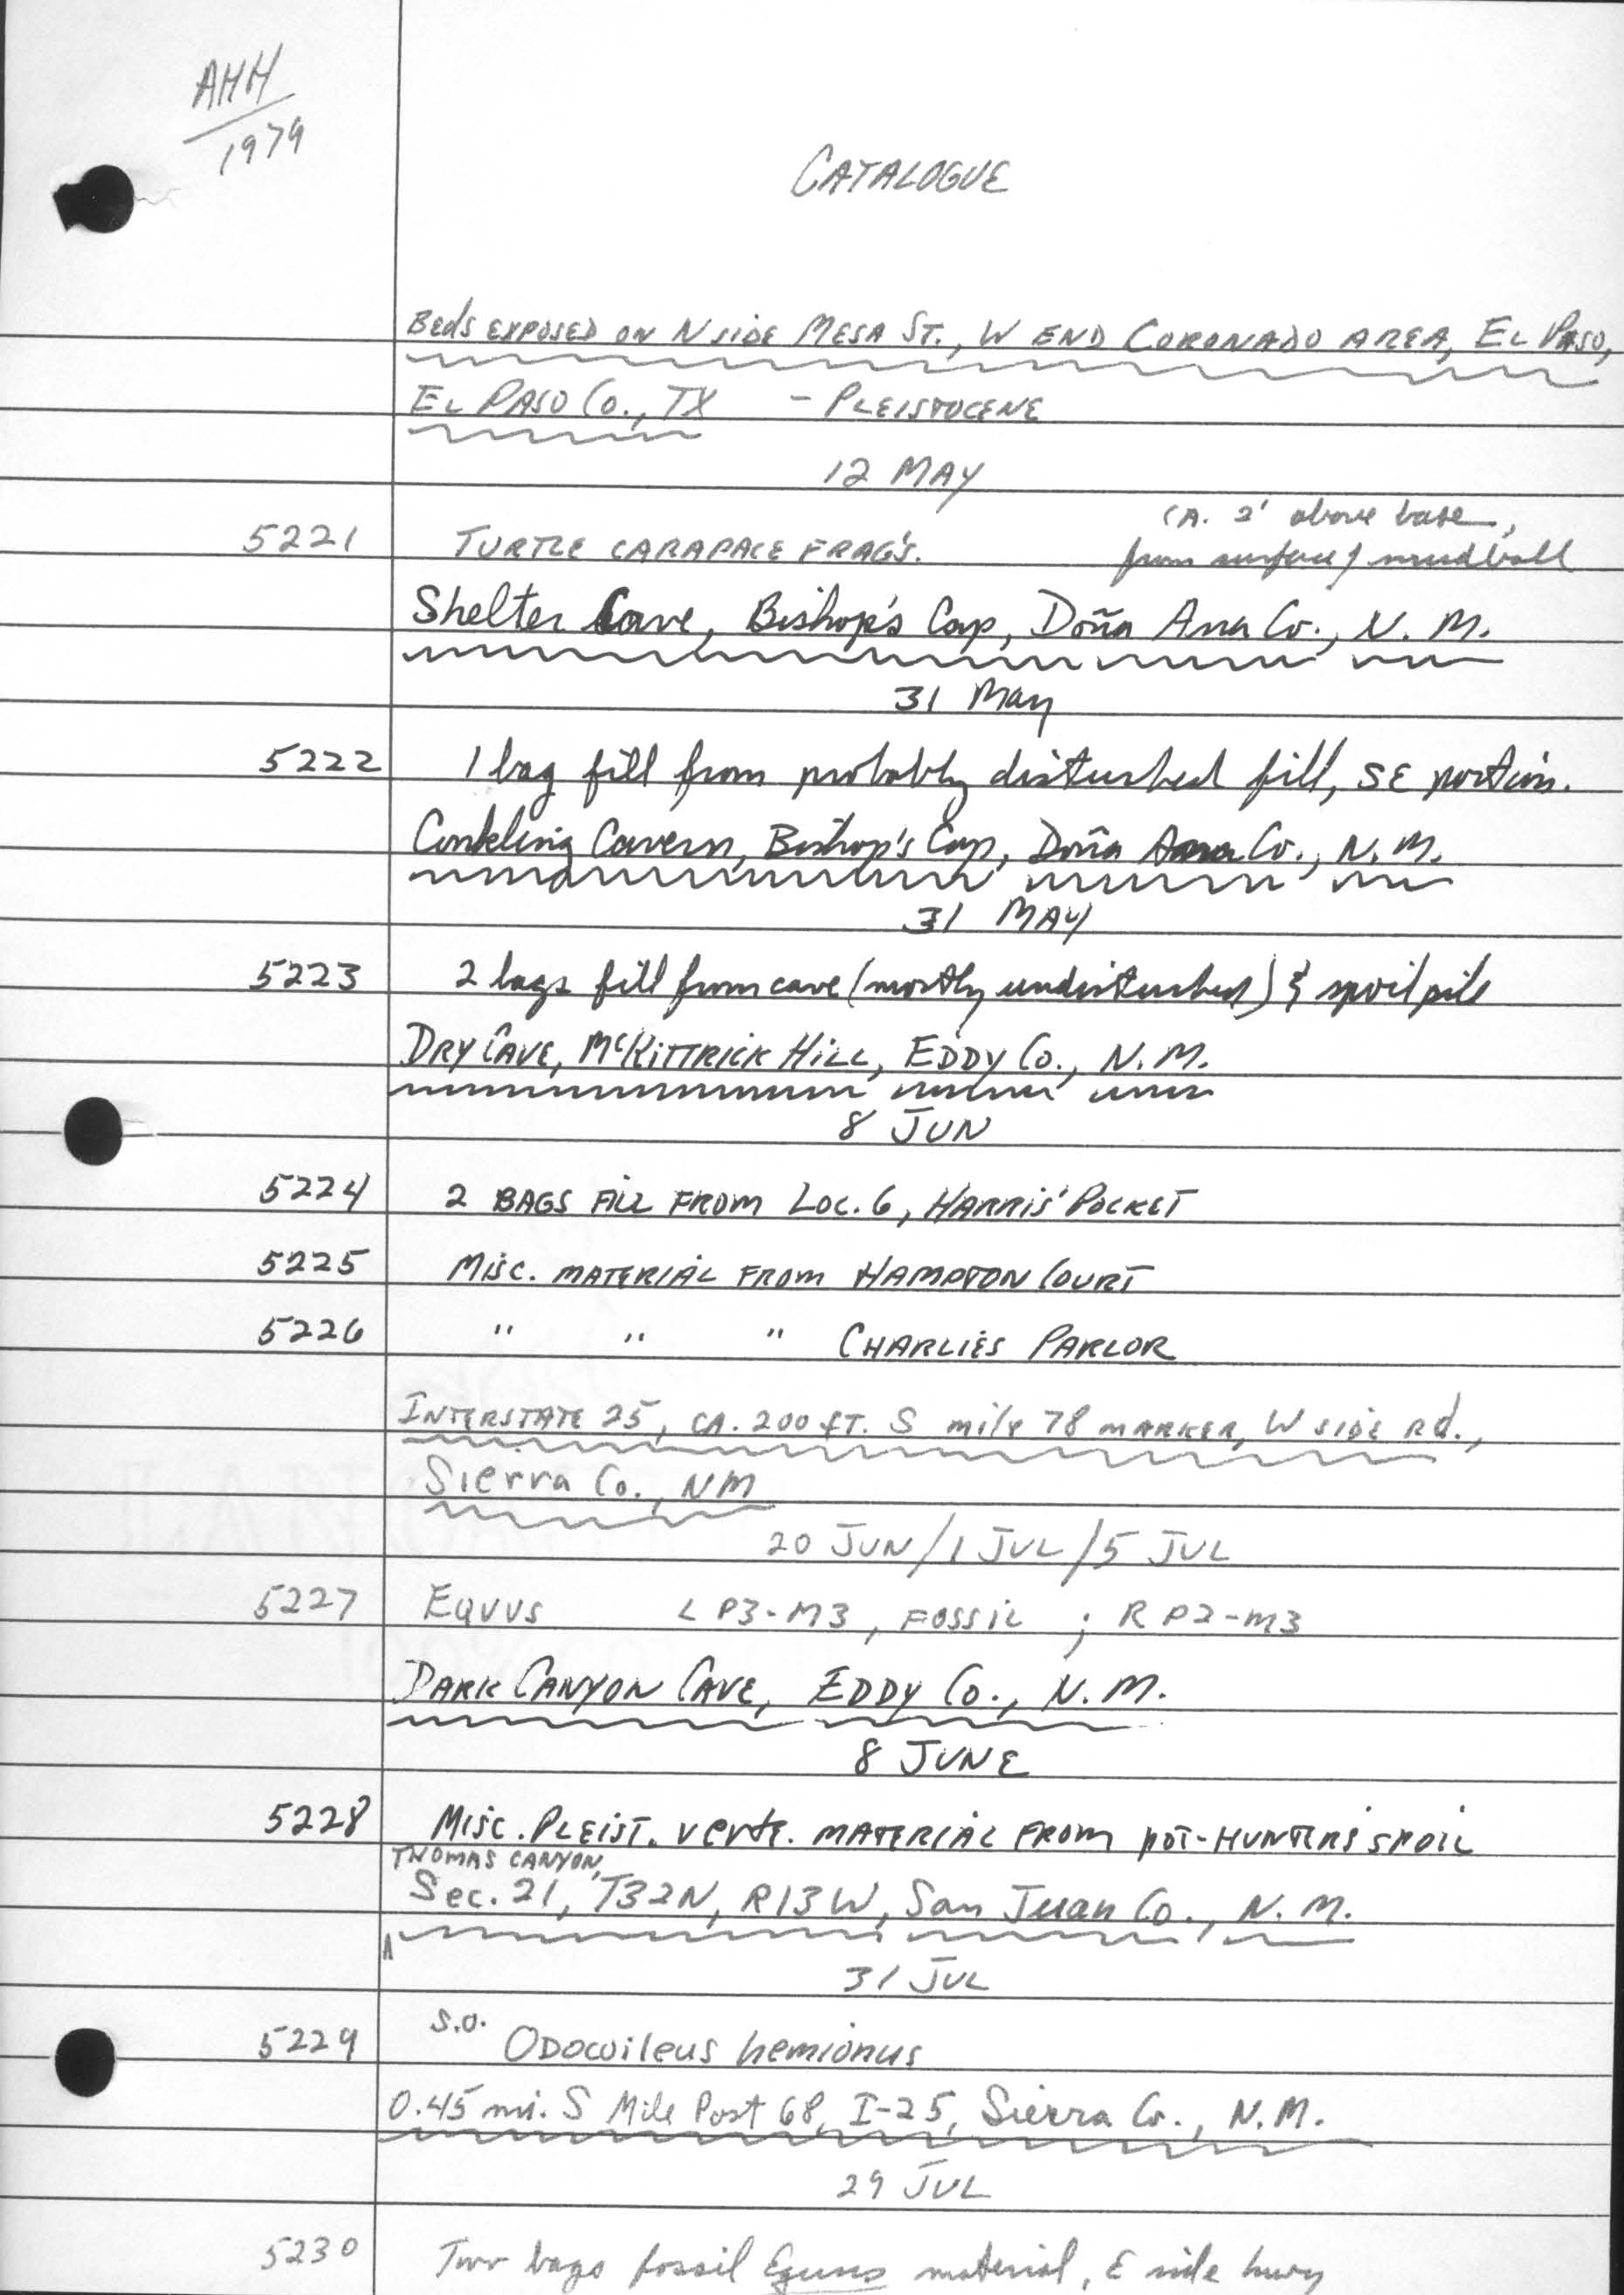 AHH
1979
CATALOGUE
Beds EXPOSED ON N SIDE MESA ST., W END CORONADO AREA, EL PASO,
EL PASO CO., TX - PLEISTOCENE
12 MAY
CA. 2' above base,
5221 TURTLE CARAPACE FRAG'S. from surface / mudball
Shelter Cave, Bishop's Cap, Doña Ana Co., N. M.
31 May
5222 1 bag fill from probably disturbed fill, SE portion.
Conkling Cavern, Bishop's Cap, Doña Ana Co., N. M.
31 MAY
5223 2 bags fill from cave (mostly undisturbed) & spoil pile
DRY CAVE, McKITTRICK HILL, EDDY CO., N.M.
8 JUN
5224 2 BAGS FILL FROM LOC. 6, HARRIS' POCKET
5225 MISC. MATERIAL FROM HAMPTON COURT
5226 " " " CHARLIES PARLOR
INTERSTATE 25, CA. 200 FT. S mile 78 MARKER, W SIDE Rd.,
Sierra Co., NM
20 JUN/1 JUL/5 JUL
5227 EQUUS L P3-M3, FOSSIL ; R P2-M3
DARK CANYON CAVE, EDDY CO., N.M.
8 JUNE
5228 MISC. PLEIST. verte. MATERIAL FROM POT-HUNTERS SPOIL
THOMAS CANYON,
Sec. 21, T32N, R13W, San Juan Co., N. M.
31 JUL
5229 S.O. Odocoileus hemionus
0.45 mi. S Mile Post 68, I-25, Sierra Co., N.M.
29 JUL
5230 Two bags fossil Equus material, E side hwy